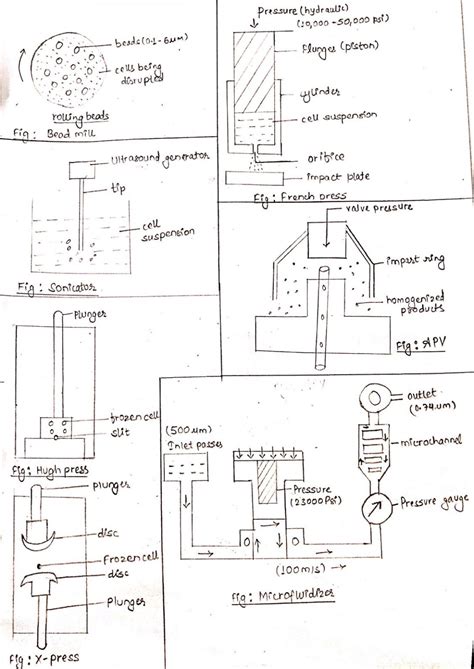 beads(0.1-6um)
cells being
disrupted
rolling beads
Fig: Bead mill
Pressure (hydraulic)
(10,000-50,000 psi)
Plunger (piston)
cylinder
cell suspension
orifice
impact plate
Fig: French press
Ultrasound generator
tip
cell
suspension
Fig: Sonicator
valve pressure
impart ring
homogenized
products
Fig: APV
Plunger
frozen cell
slit
Fig: Hugh press
plunger
disc
Frozen cell
disc
Plunger
Fig: X-press
(500um)
Inlet passes
Pressure
(23000 Psi)
(100m/s)
outlet
microchannel
Pressure gauge
Fig: Microfluidizer